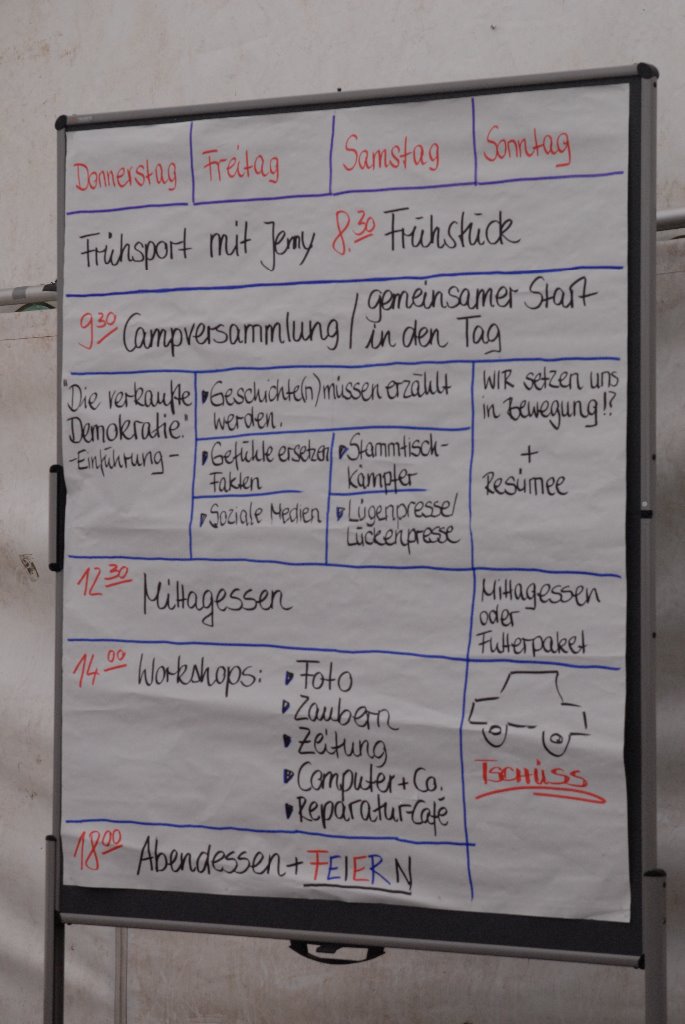 Donnerstag Freitag Samstag Sonntag
Frühsport mit Jemy 8.30 Frühstück
9 30 Campversammlung / gemeinsamer Start
in den Tag
"Die verkaufte
Demokratie."
-Einführung-
Geschichte(n) müssen erzählt
werden.
Gefühle ersetzen
Fakten
Soziale Medien
Stammtisch-
kämpfer
Lügenpresse/
Lückenpresse
WIR setzen uns
in Bewegung!?
+
Resümee
12 30 Mittagessen
Mittagessen
oder
Futterpaket
14 00 Workshops:
Foto
Zaubern
Zeitung
Computer + Co.
Reparatur-Café
TSCHÜSS
18 00 Abendessen + FEIERN